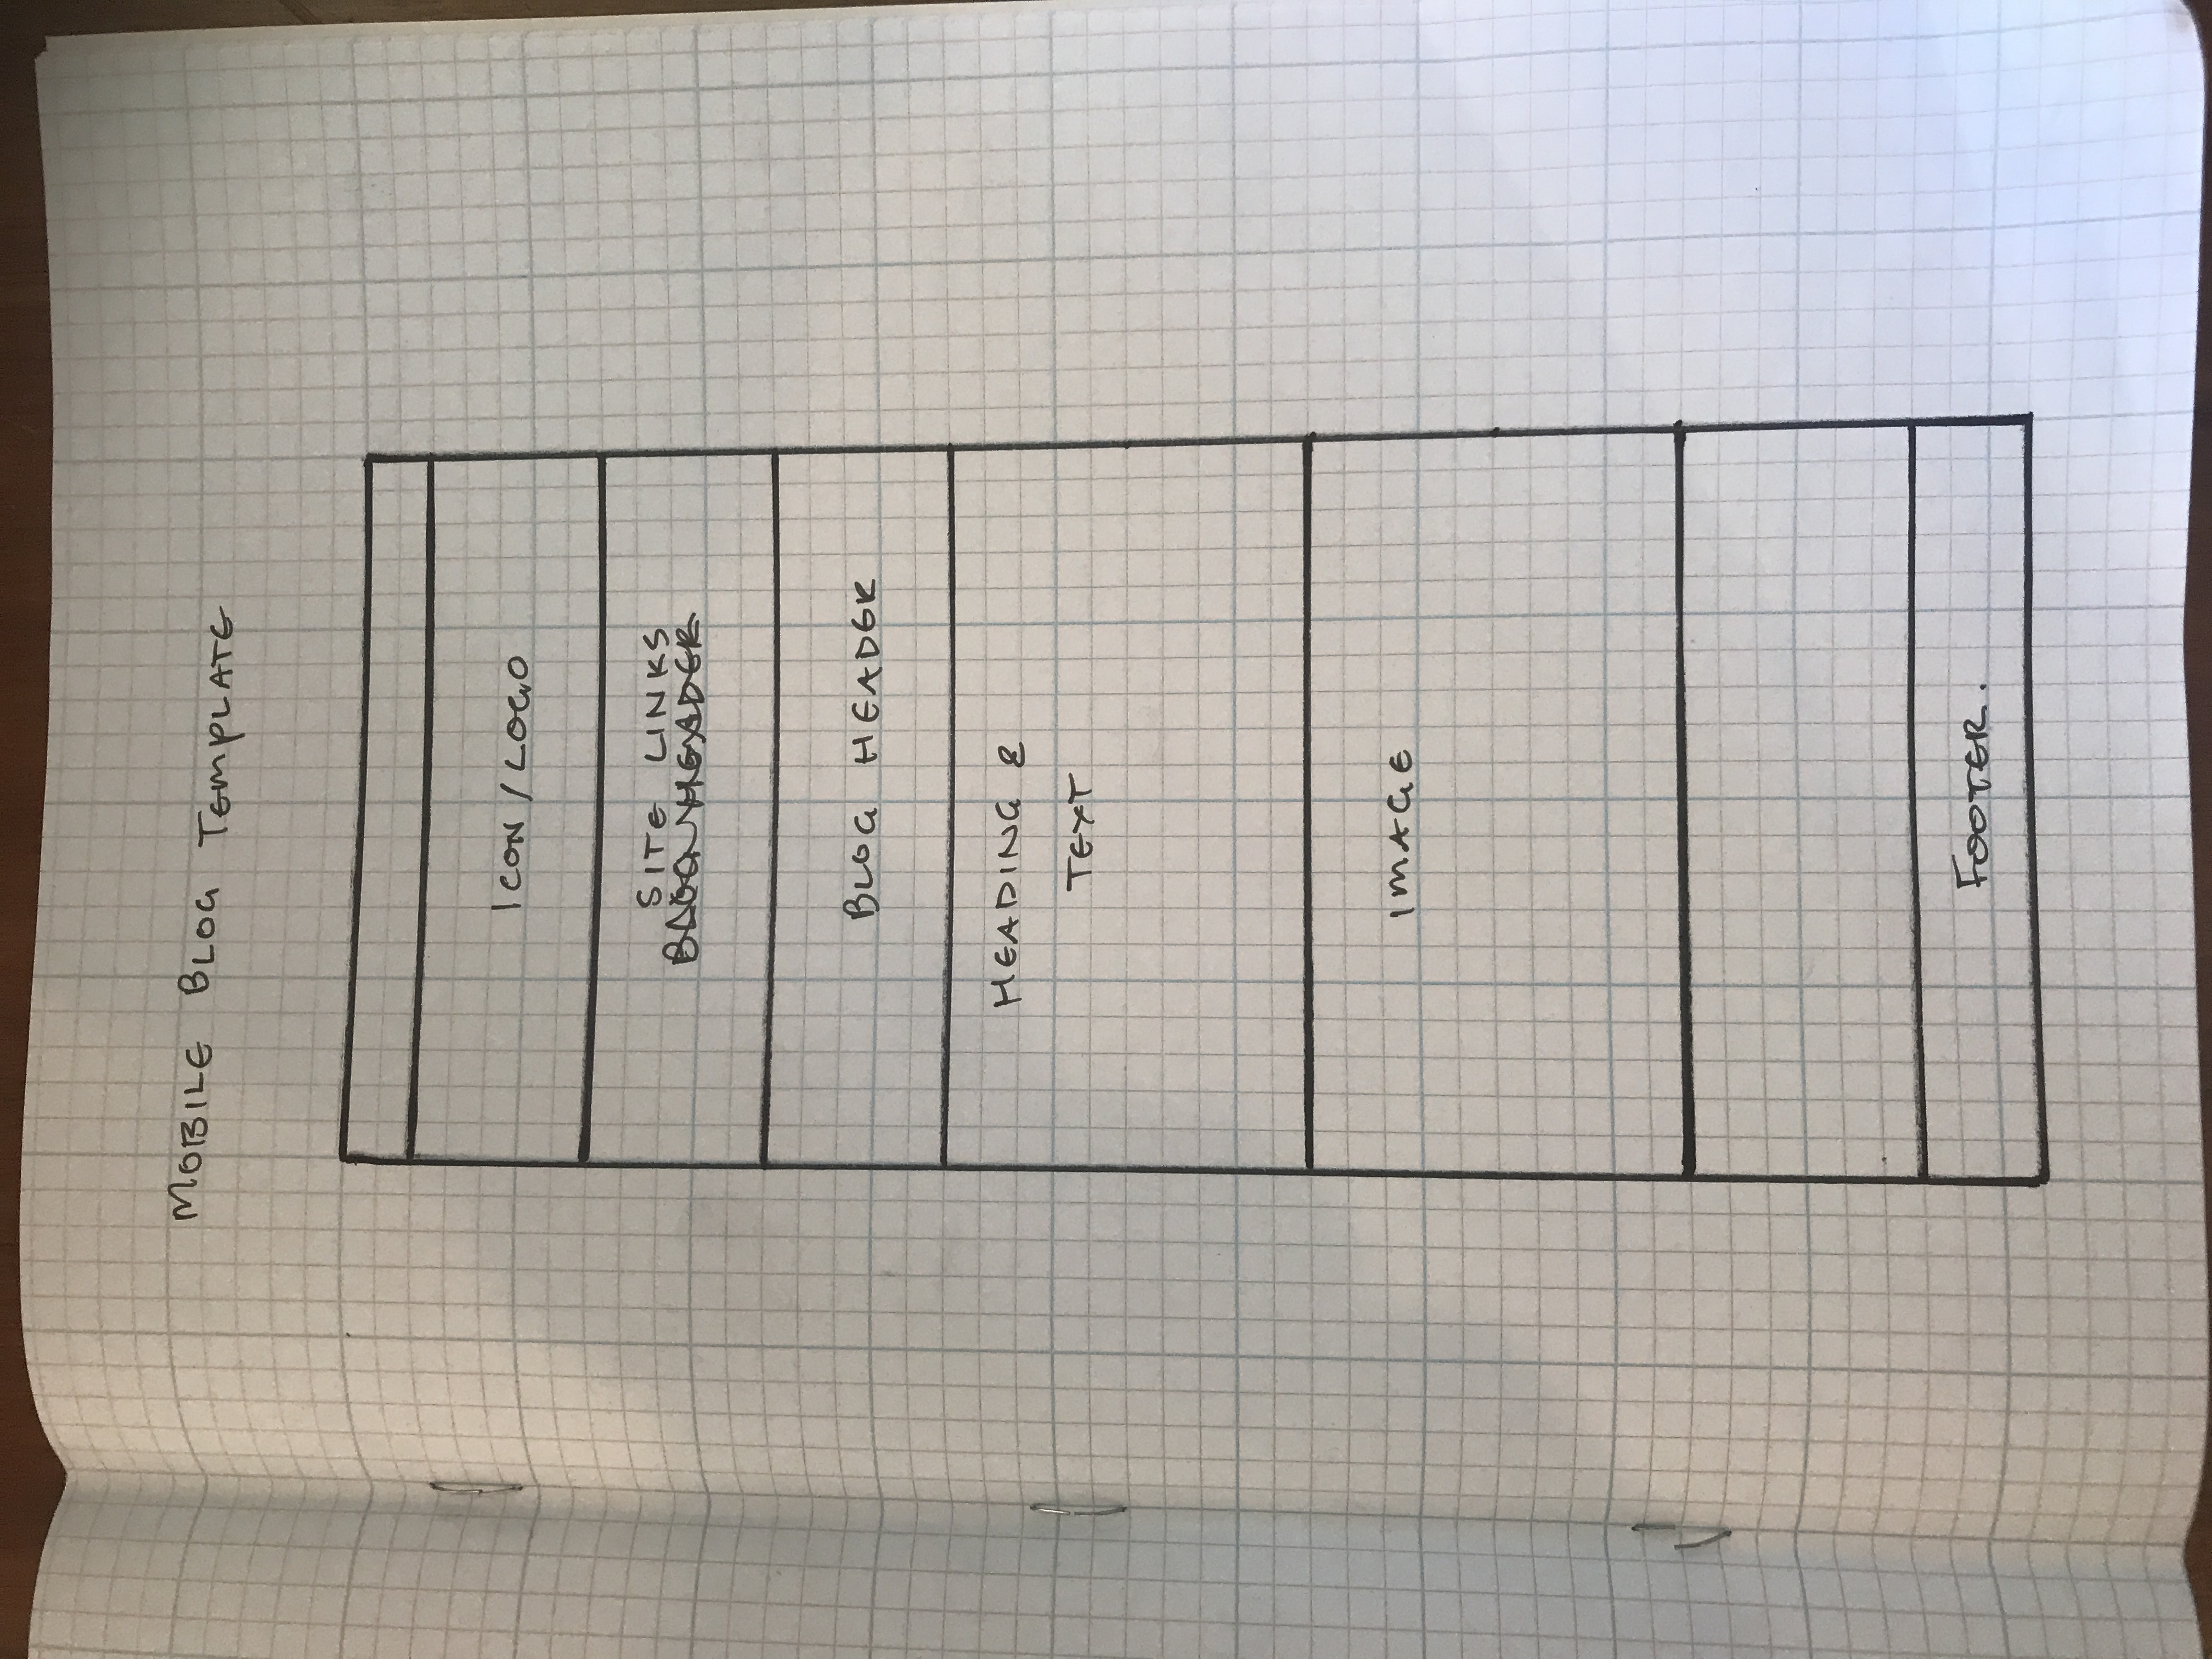 MOBILE BLOG TEMPLATE
ICON / LOGO
SITE LINKS
BLOG HEADER
BLOG HEADER
HEADING &
TEXT
IMAGE
FOOTER.